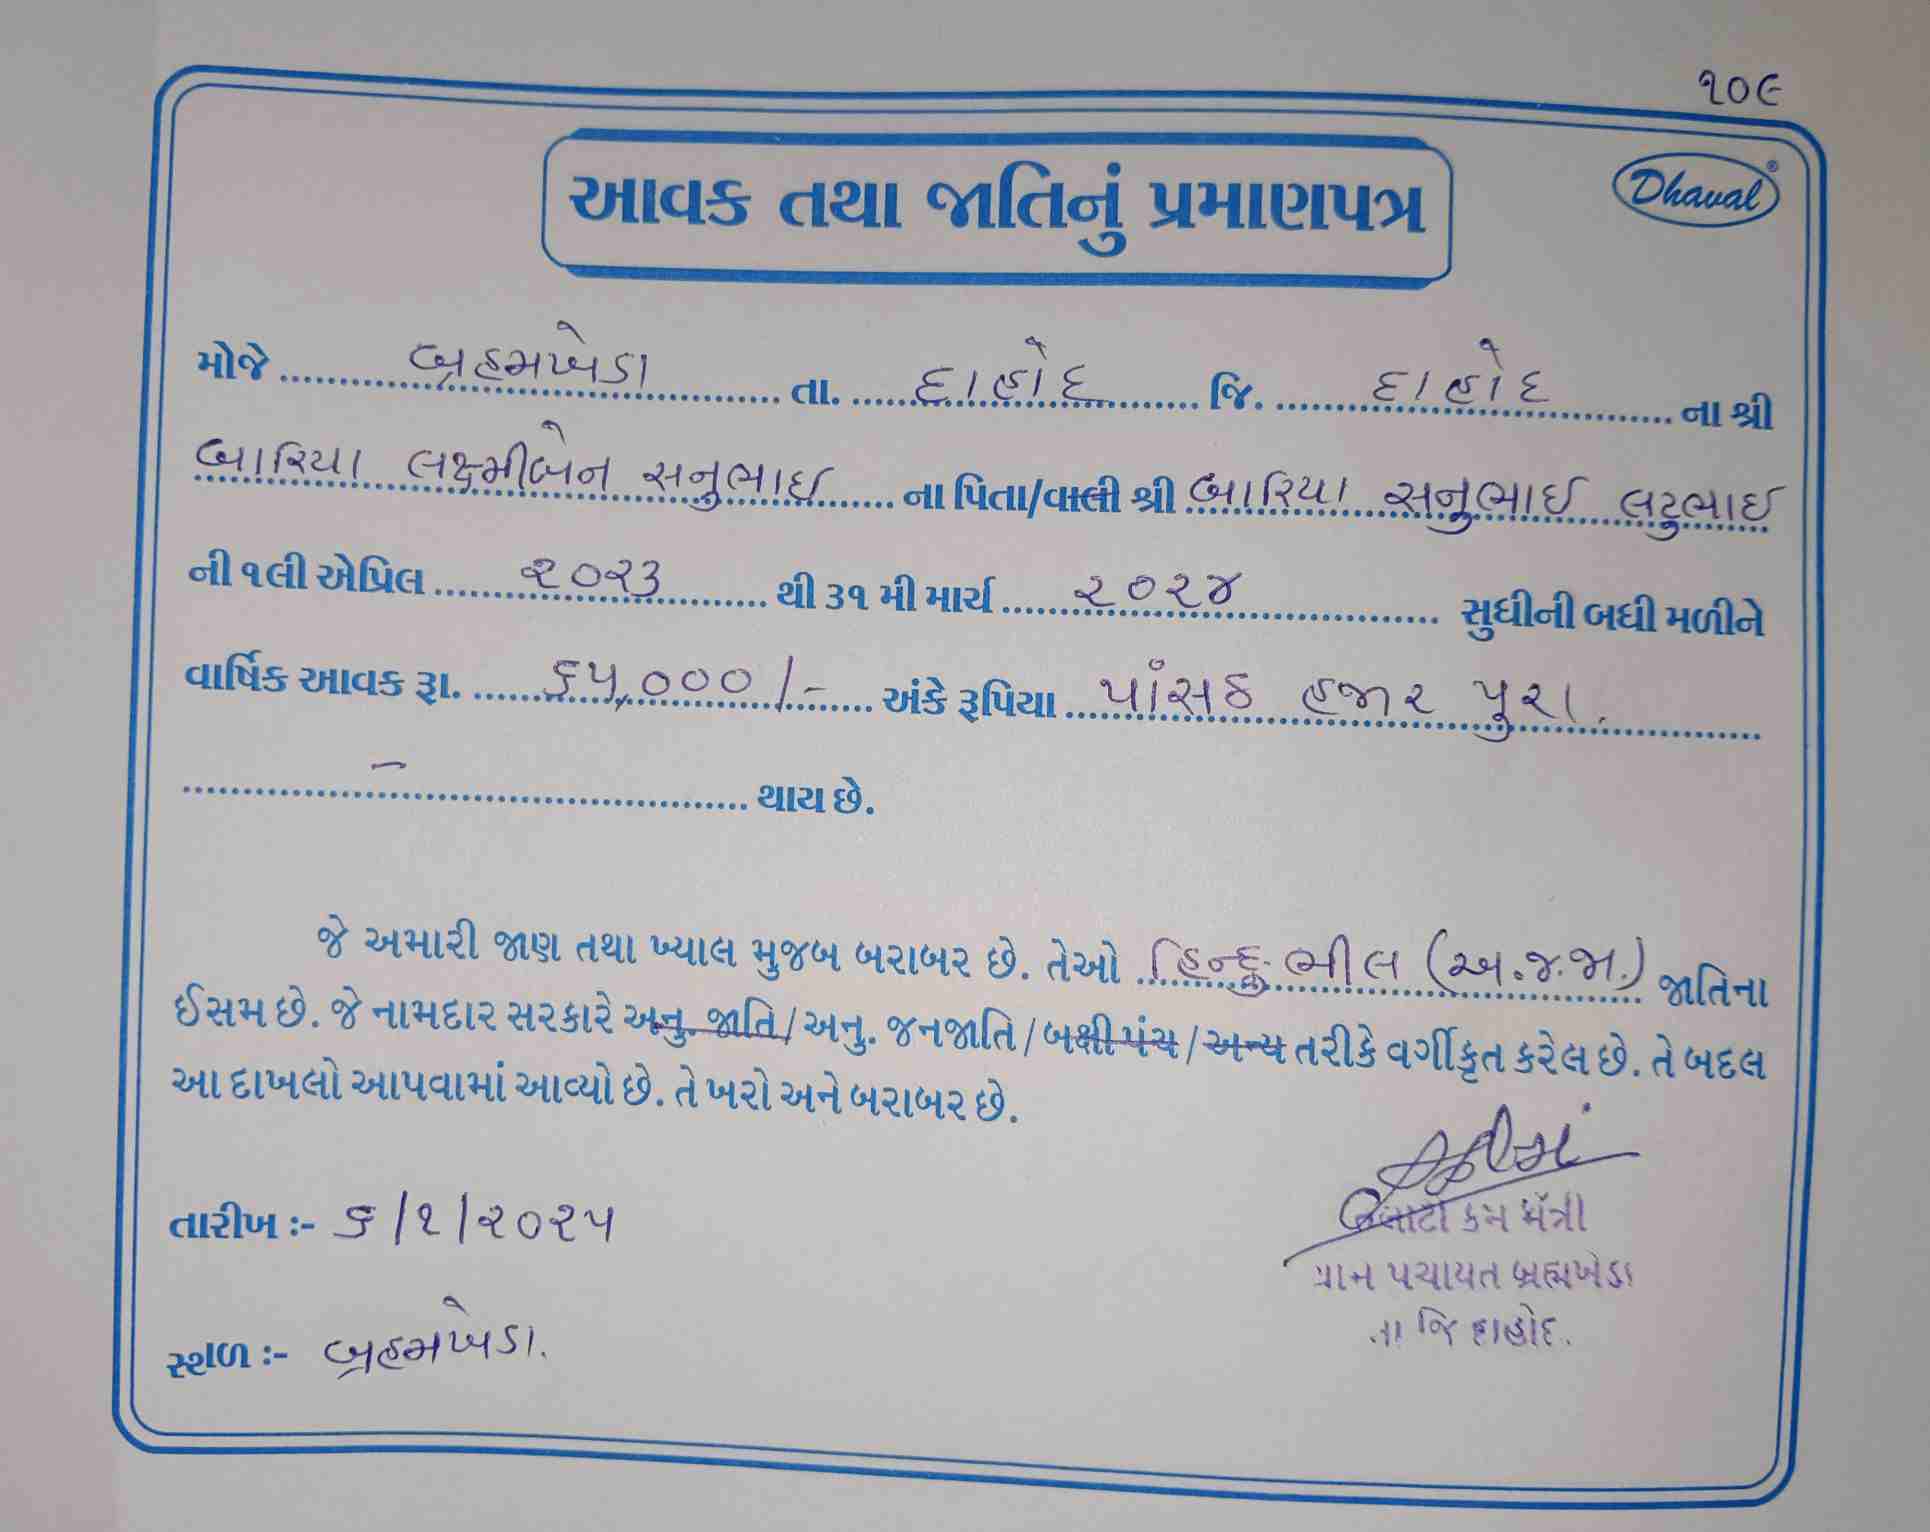 ૧૦૯
Dhaval®
આવક તથા જાતિનું પ્રમાણપત્ર
મોજે બ્રહમખેડા તા. દાહોદ જિ. દાહોદ ના શ્રી
બારિયા લક્ષ્મીબેન સનુભાઇ ના પિતા/વાલી શ્રી બારિયા સનુભાઇ લટુભાઇ
ની ૧લી એપ્રિલ ૨૦૨૩ થી ૩૧ મી માર્ચ ૨૦૨૪ સુધીની બધી મળીને
વાર્ષિક આવક રૂા. ૬૫,૦૦૦/- અંકે રૂપિયા પાંસઠ હજાર પુરા.
- થાય છે.
જે અમારી જાણ તથા ખ્યાલ મુજબ બરાબર છે. તેઓ હિન્દુ ભીલ (અ.જ.જા.) જાતિના
ઈસમ છે. જે નામદાર સરકારે અનુ. જાતિ/અનુ. જનજાતિ/બક્ષીપંચ/અન્ય તરીકે વર્ગીકૃત કરેલ છે. તે બદલ
આ દાખલો આપવામાં આવ્યો છે. તે ખરો અને બરાબર છે.
તારીખ :- ૬/૧/૨૦૨૫
તલાટી કમ મંત્રી
ગ્રામ પંચાયત બ્રહ્મખેડા
તા જિ દાહોદ.
સ્થળ :- બ્રહમખેડા.